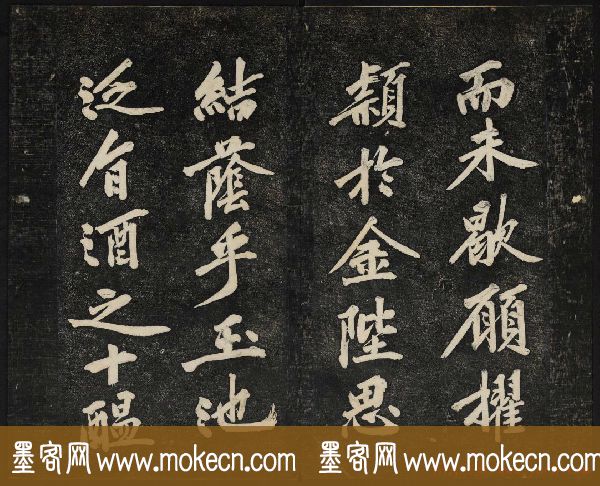 而未歇願擢
穎於金陛思
結蔭乎玉池
泛旨酒之十醖
墨客网 www.mokecn.com 墨客网 www.mokecn.com